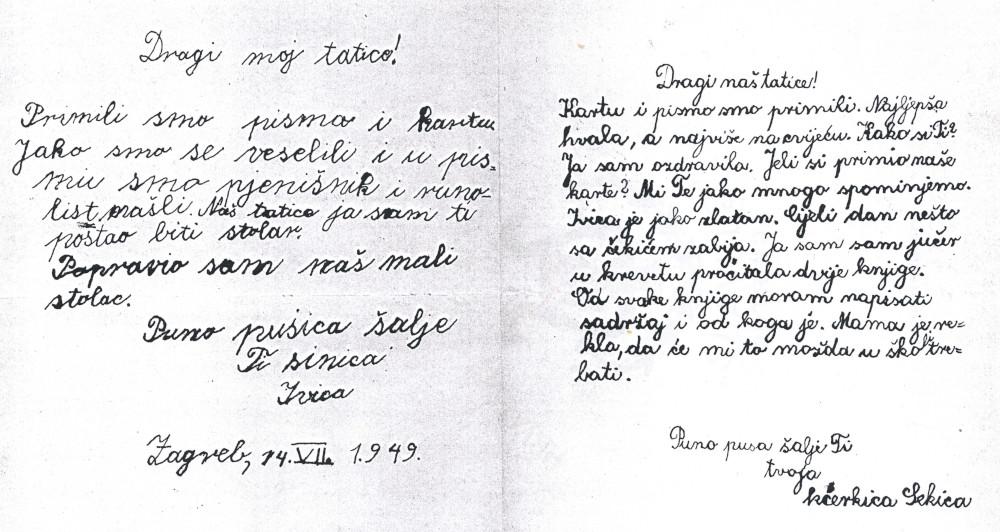 Dragi moj tatico!
Primili smo pisma i kartu
Jako smo se veselili i u pis-
miu smo pjenišnik i runo-
list našli. Naš tatico ja sam ti
poštao biti stolar.
Popravio sam naš mali
stolac.
Puno pušica šalje
Ti sinica
Ivica
Zagreb, 14. VII. 1.949.
Dragi naš tatice!
Kartu i pismo smo primili. Najljepša
hvala, a najviše na cvijeću. Kako si Ti?
Ja sam ozdravila. Jeli si primio naše
karte? Mi Te jako mnogo spominjemo.
Ivica je jako zlatan. Cijeli dan nešto
sa čekićem zabija. Ja sam sam jučer
u krevetu pročitala dvije knjige.
Od svake knjige moram napisati
sadržaj i od koga je. Mama je re-
kla, da će mi to možda u školi tre-
bati.
Puno pusa šalje Ti
tvoja
kćerkica Sekica